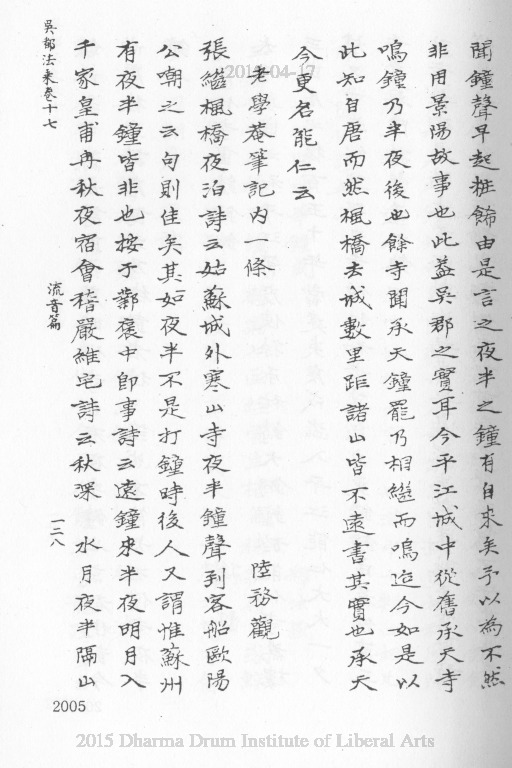 聞鐘聲早起粧飾由是言之夜半之鐘有自來矣予以為不然
非用景陽故事也此蓋吳郡之實耳今平江城中從舊承天寺
鳴鐘乃半夜後也餘寺聞承天鐘罷乃相繼而鳴迨今如是以
此知自唐而然楓橋去城數里距諸山皆不遠書其實也承天
今更名能仁云
老學菴筆記內一條 陸務觀
張繼楓橋夜泊詩云姑蘇城外寒山寺夜半鐘聲到客船歐陽
公嘲之云句則佳矣其如夜半不是打鐘時後人又謂惟蘇州
有夜半鐘皆非也按于鄴褒中即事詩云遠鐘來半夜明月入
千家皇甫冉秋夜宿會稽嚴維宅詩云秋深 水月夜半隔山
吳都法乘卷十七 流音篇 一二八
2005
2019-04-17
2015 Dharma Drum Institute of Liberal Arts